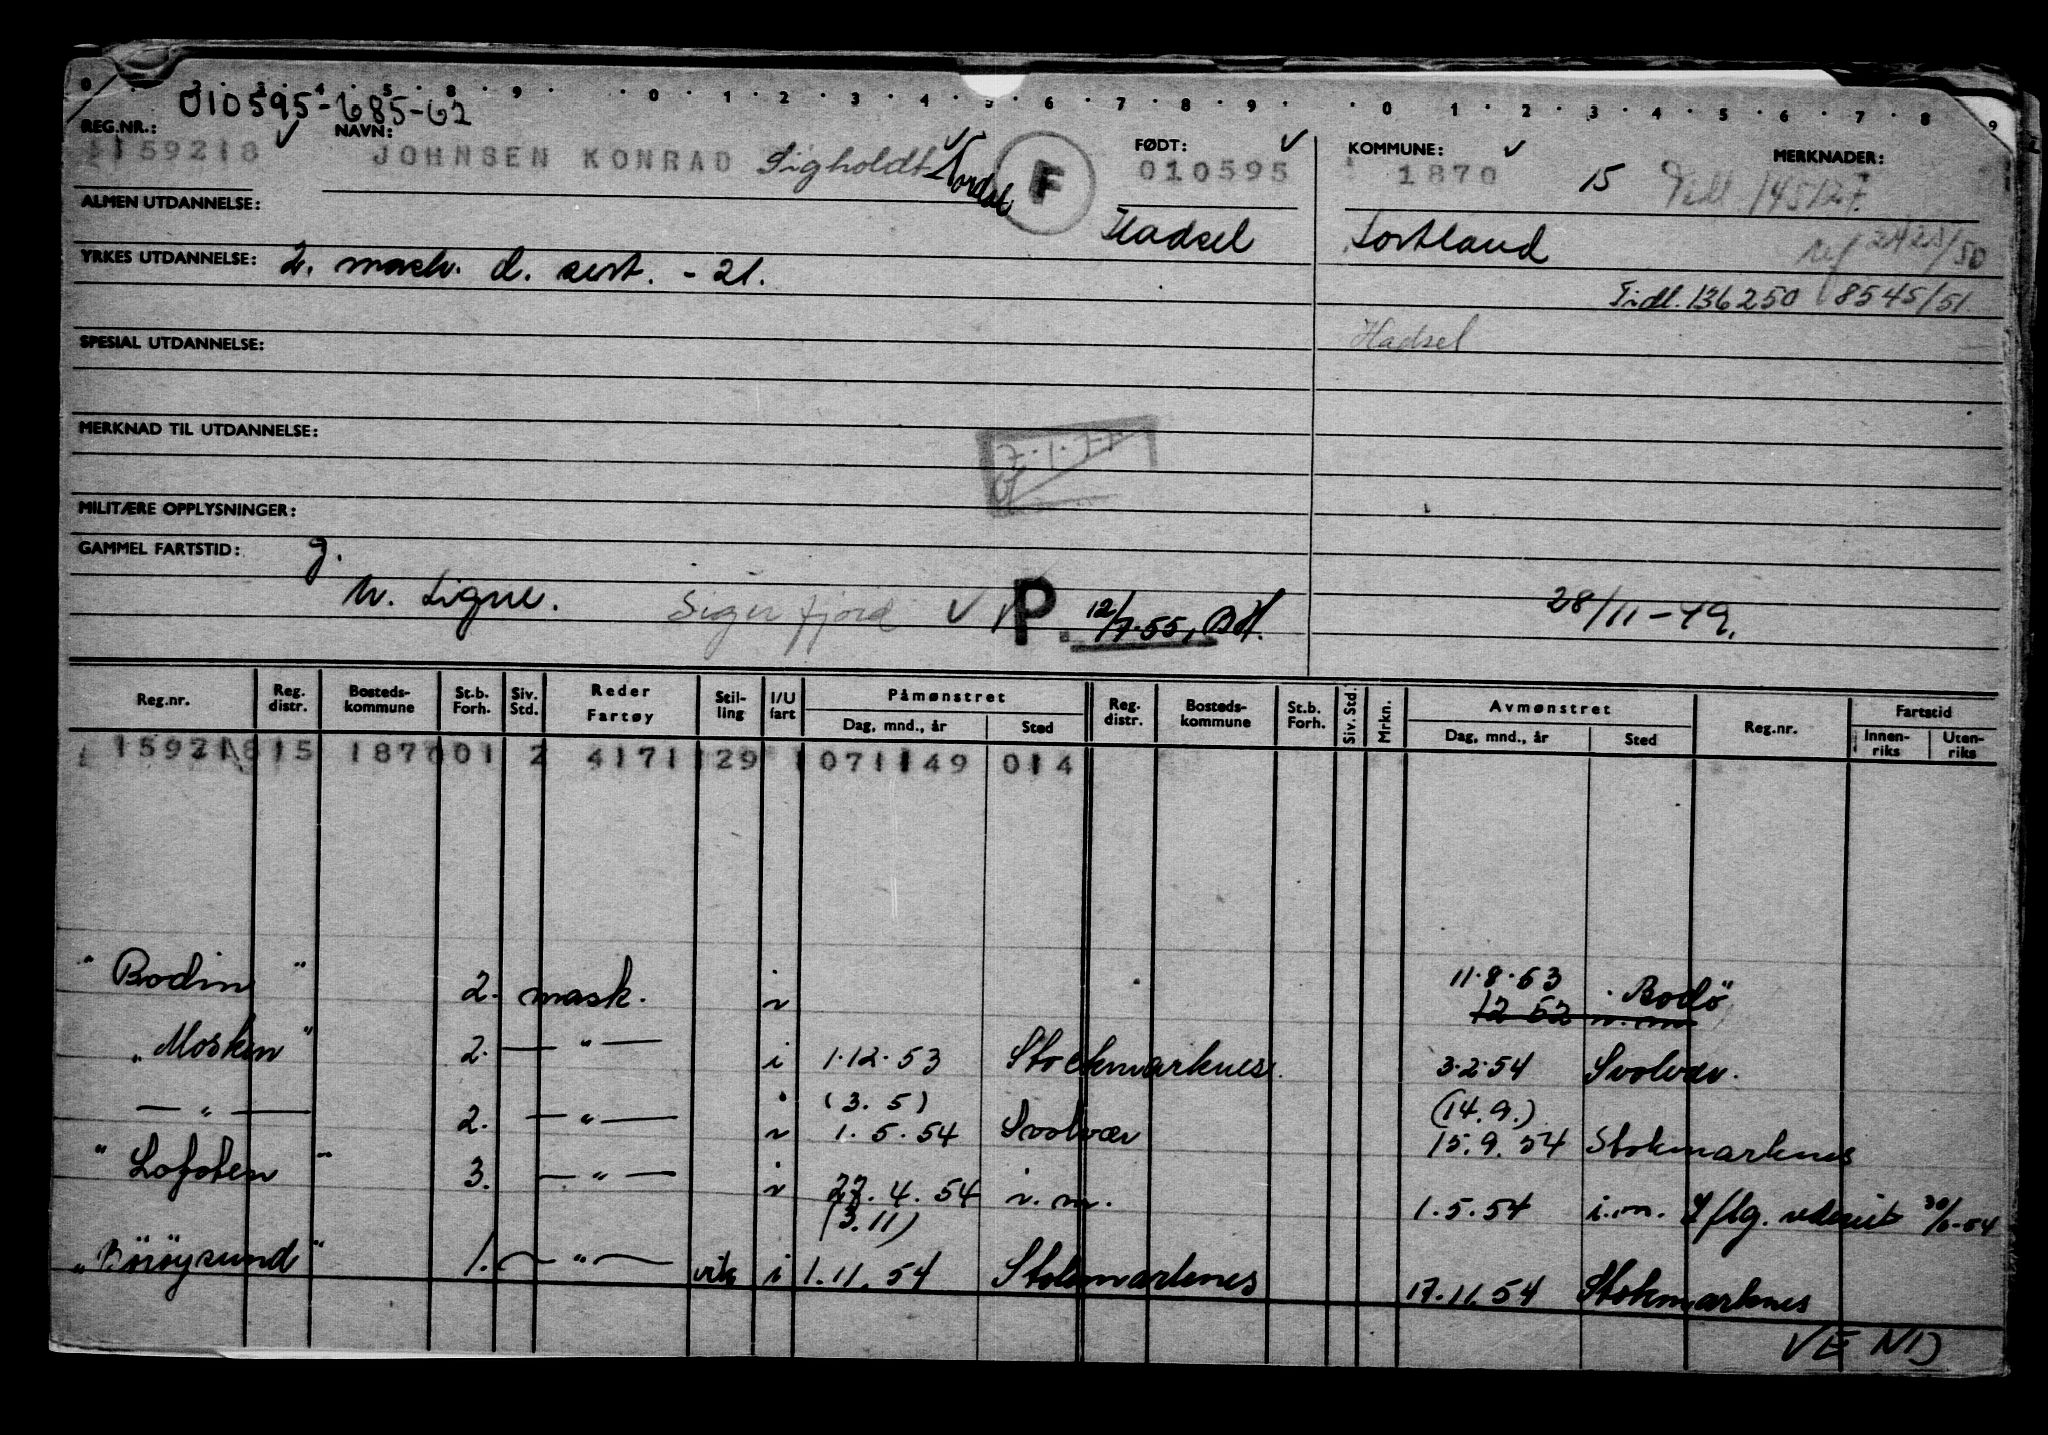 010595-685-62
REG.NR.: NAVN: FØDT: KOMMUNE: MERKNADER:
159218 JOHNSEN KONRAD Sigholdt F 010595 1870 15 Tidl. 145127
ALMEN UTDANNELSE: Hadsel Sortland
YRKES UTDANNELSE: 2. mask. d. sert. - 21.
Tidl. 136250 8545/51.
SPESIAL UTDANNELSE: Hadsel
MERKNAD TIL UTDANNELSE:
MILITÆRE OPPLYSNINGER:
GAMMEL FARTSTID: g.
Sigerfjord P. 12/7.55, 28/11-49.
Reg.nr. Reg. distr. Bosteds-kommune St.b. Forh. Siv. Std. Reder Fartøy Stil-ling I/U fart Påmønstret Dag, mnd., år Sted Reg. distr. Bosteds-kommune St.b. Forh. Siv. Std. Mrkn. Avmønstret Dag, mnd., år Sted Reg.nr. Fartstid Innen-riks Uten-riks
159218 15 1870 01 2 4171 129 1 071149 014
" Bodin " 2. mask. i 11.8.53 Bodö
12 52 i.m.
"Mosken" 2. — " — i 1.12.53 Stockmarknes. 3.2.54 Svolvær.
(3.5) (14.9.)
— " — 2. — " — i 1.5.54 Svolvær 15.9.54 Stokmarknes
" Lofoten " 3. — " — i 27.4.54 i.m. 1.5.54 i.m.
(3.11)
"Böröysund" 1. — " — vik i 1.11.54 Stokmarknes 17.11.54 Stokmarknes
VEND